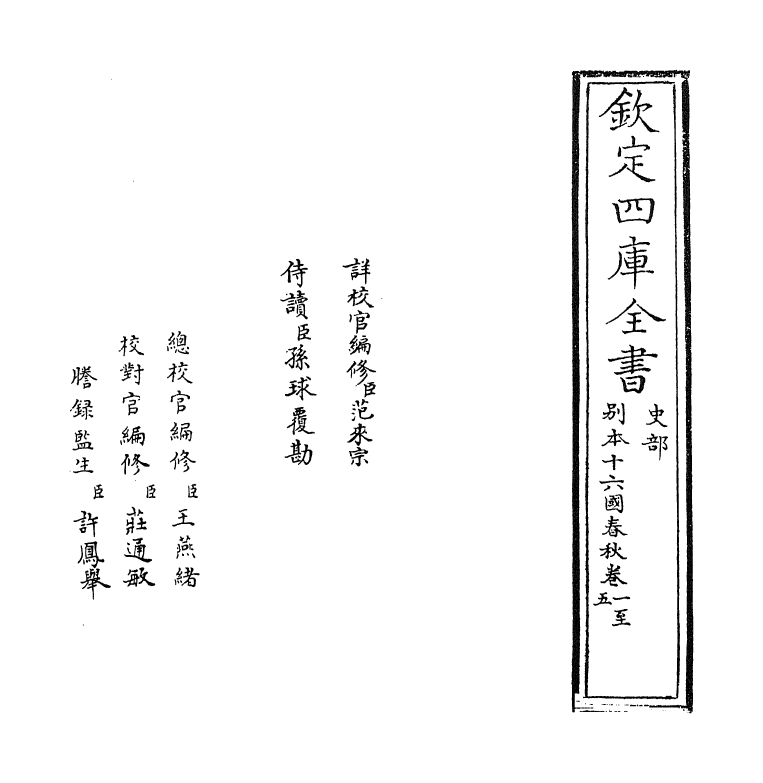 欽定四庫全書
史部
别本十六國春秋卷一至五
詳校官編修臣范來宗
侍讀臣孫球覆勘
總校官編修臣王燕緒
校對官編修臣莊通敏
謄録監生臣許鳳舉